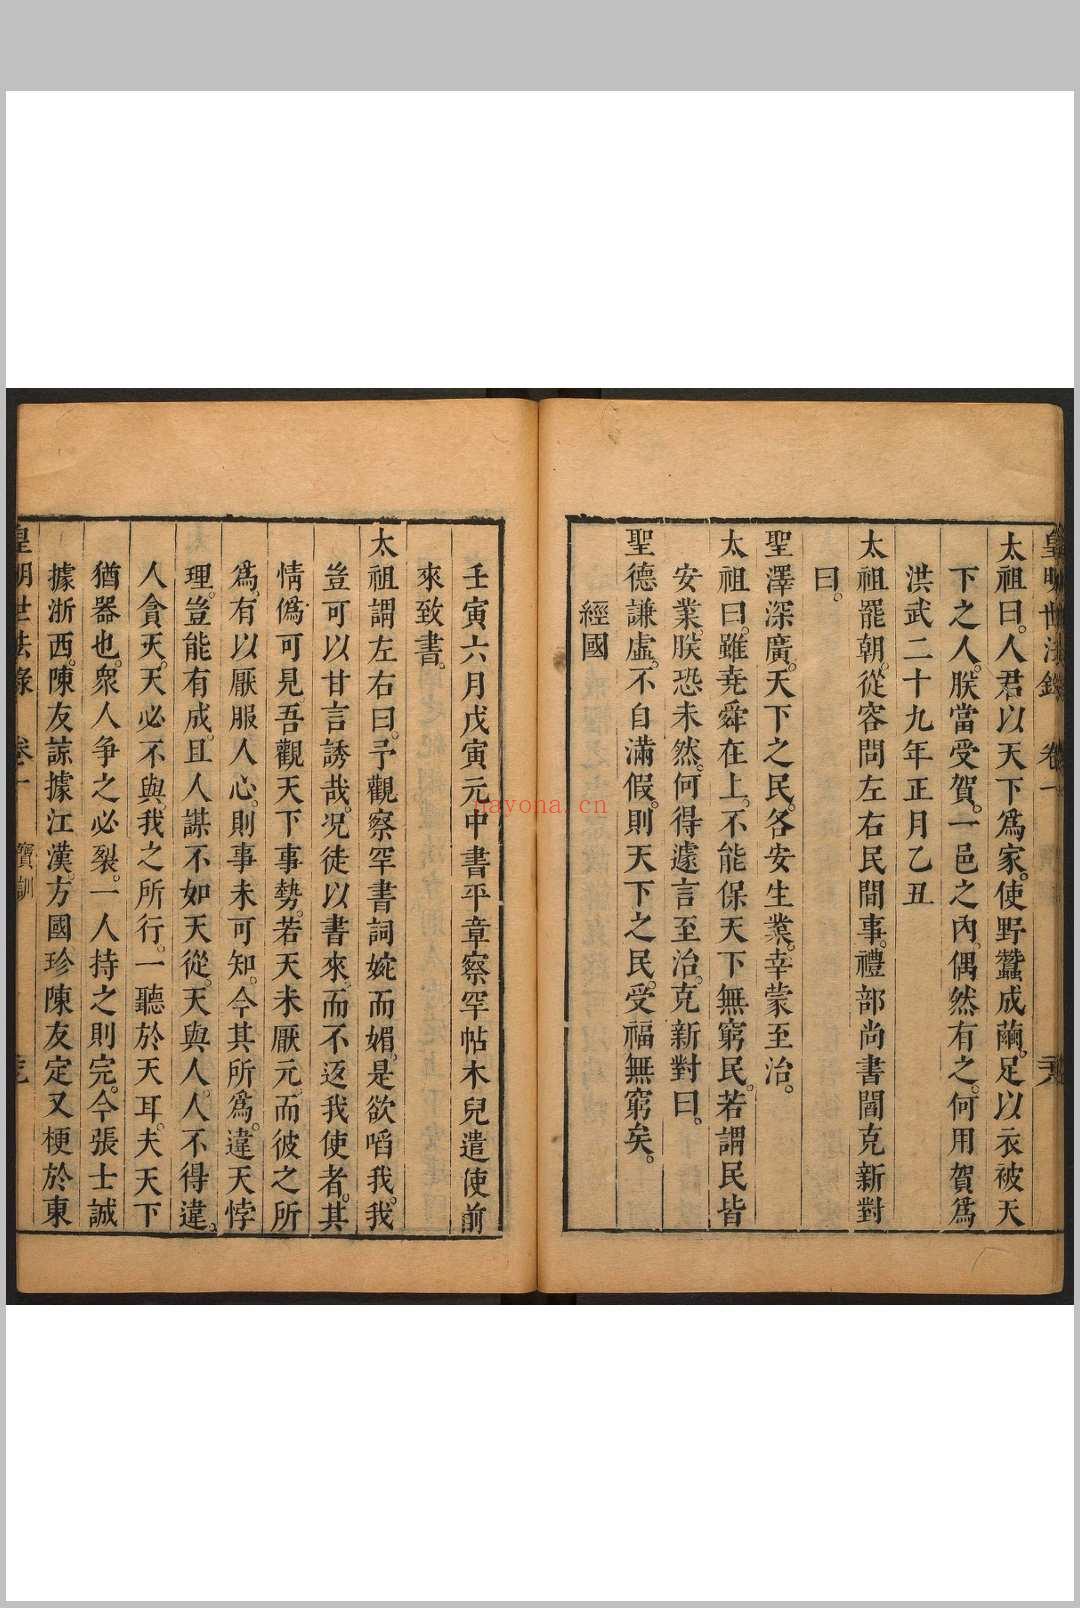 皇明世法錄 卷一
太祖曰。人君以天下爲家。使野蠶成繭。足以衣被天
下之人。朕當受賀。一邑之內。偶然有之。何用賀爲
洪武二十九年正月乙丑
太祖罷朝。從容問左右民間事。禮部尚書閻克新對
曰。
聖澤深廣。天下之民。各安生業。幸蒙至治。
太祖曰。雖堯舜在上。不能保天下無窮民。若謂民皆
安業。朕恐未然。何得遽言至治。克新對曰。
聖德謙虛。不自滿假。則天下之民。受福無窮矣。
經國
壬寅六月戊寅元中書平章察罕帖木兒遣使前
來致書。
太祖謂左右曰。予觀察罕書詞婉而媚。是欲啗我。我
豈可以甘言誘哉。况徒以書來。而不返我使者。其
情僞可見吾觀天下事勢。若天未厭元。而彼之所
爲。有以厭服人心。則事未可知。今其所爲。違天悖
理。豈能有成。且人謀不如天從。天與人。人不得違。
人貪天。天必不與。我之所行。一聽於天耳。夫天下
猶器也。衆人爭之必裂。一人持之則完。今張士誠
據浙西。陳友諒據江漢。方國珍陳友定又梗於東
皇明世法錄 卷一 寶訓
nayona.cn